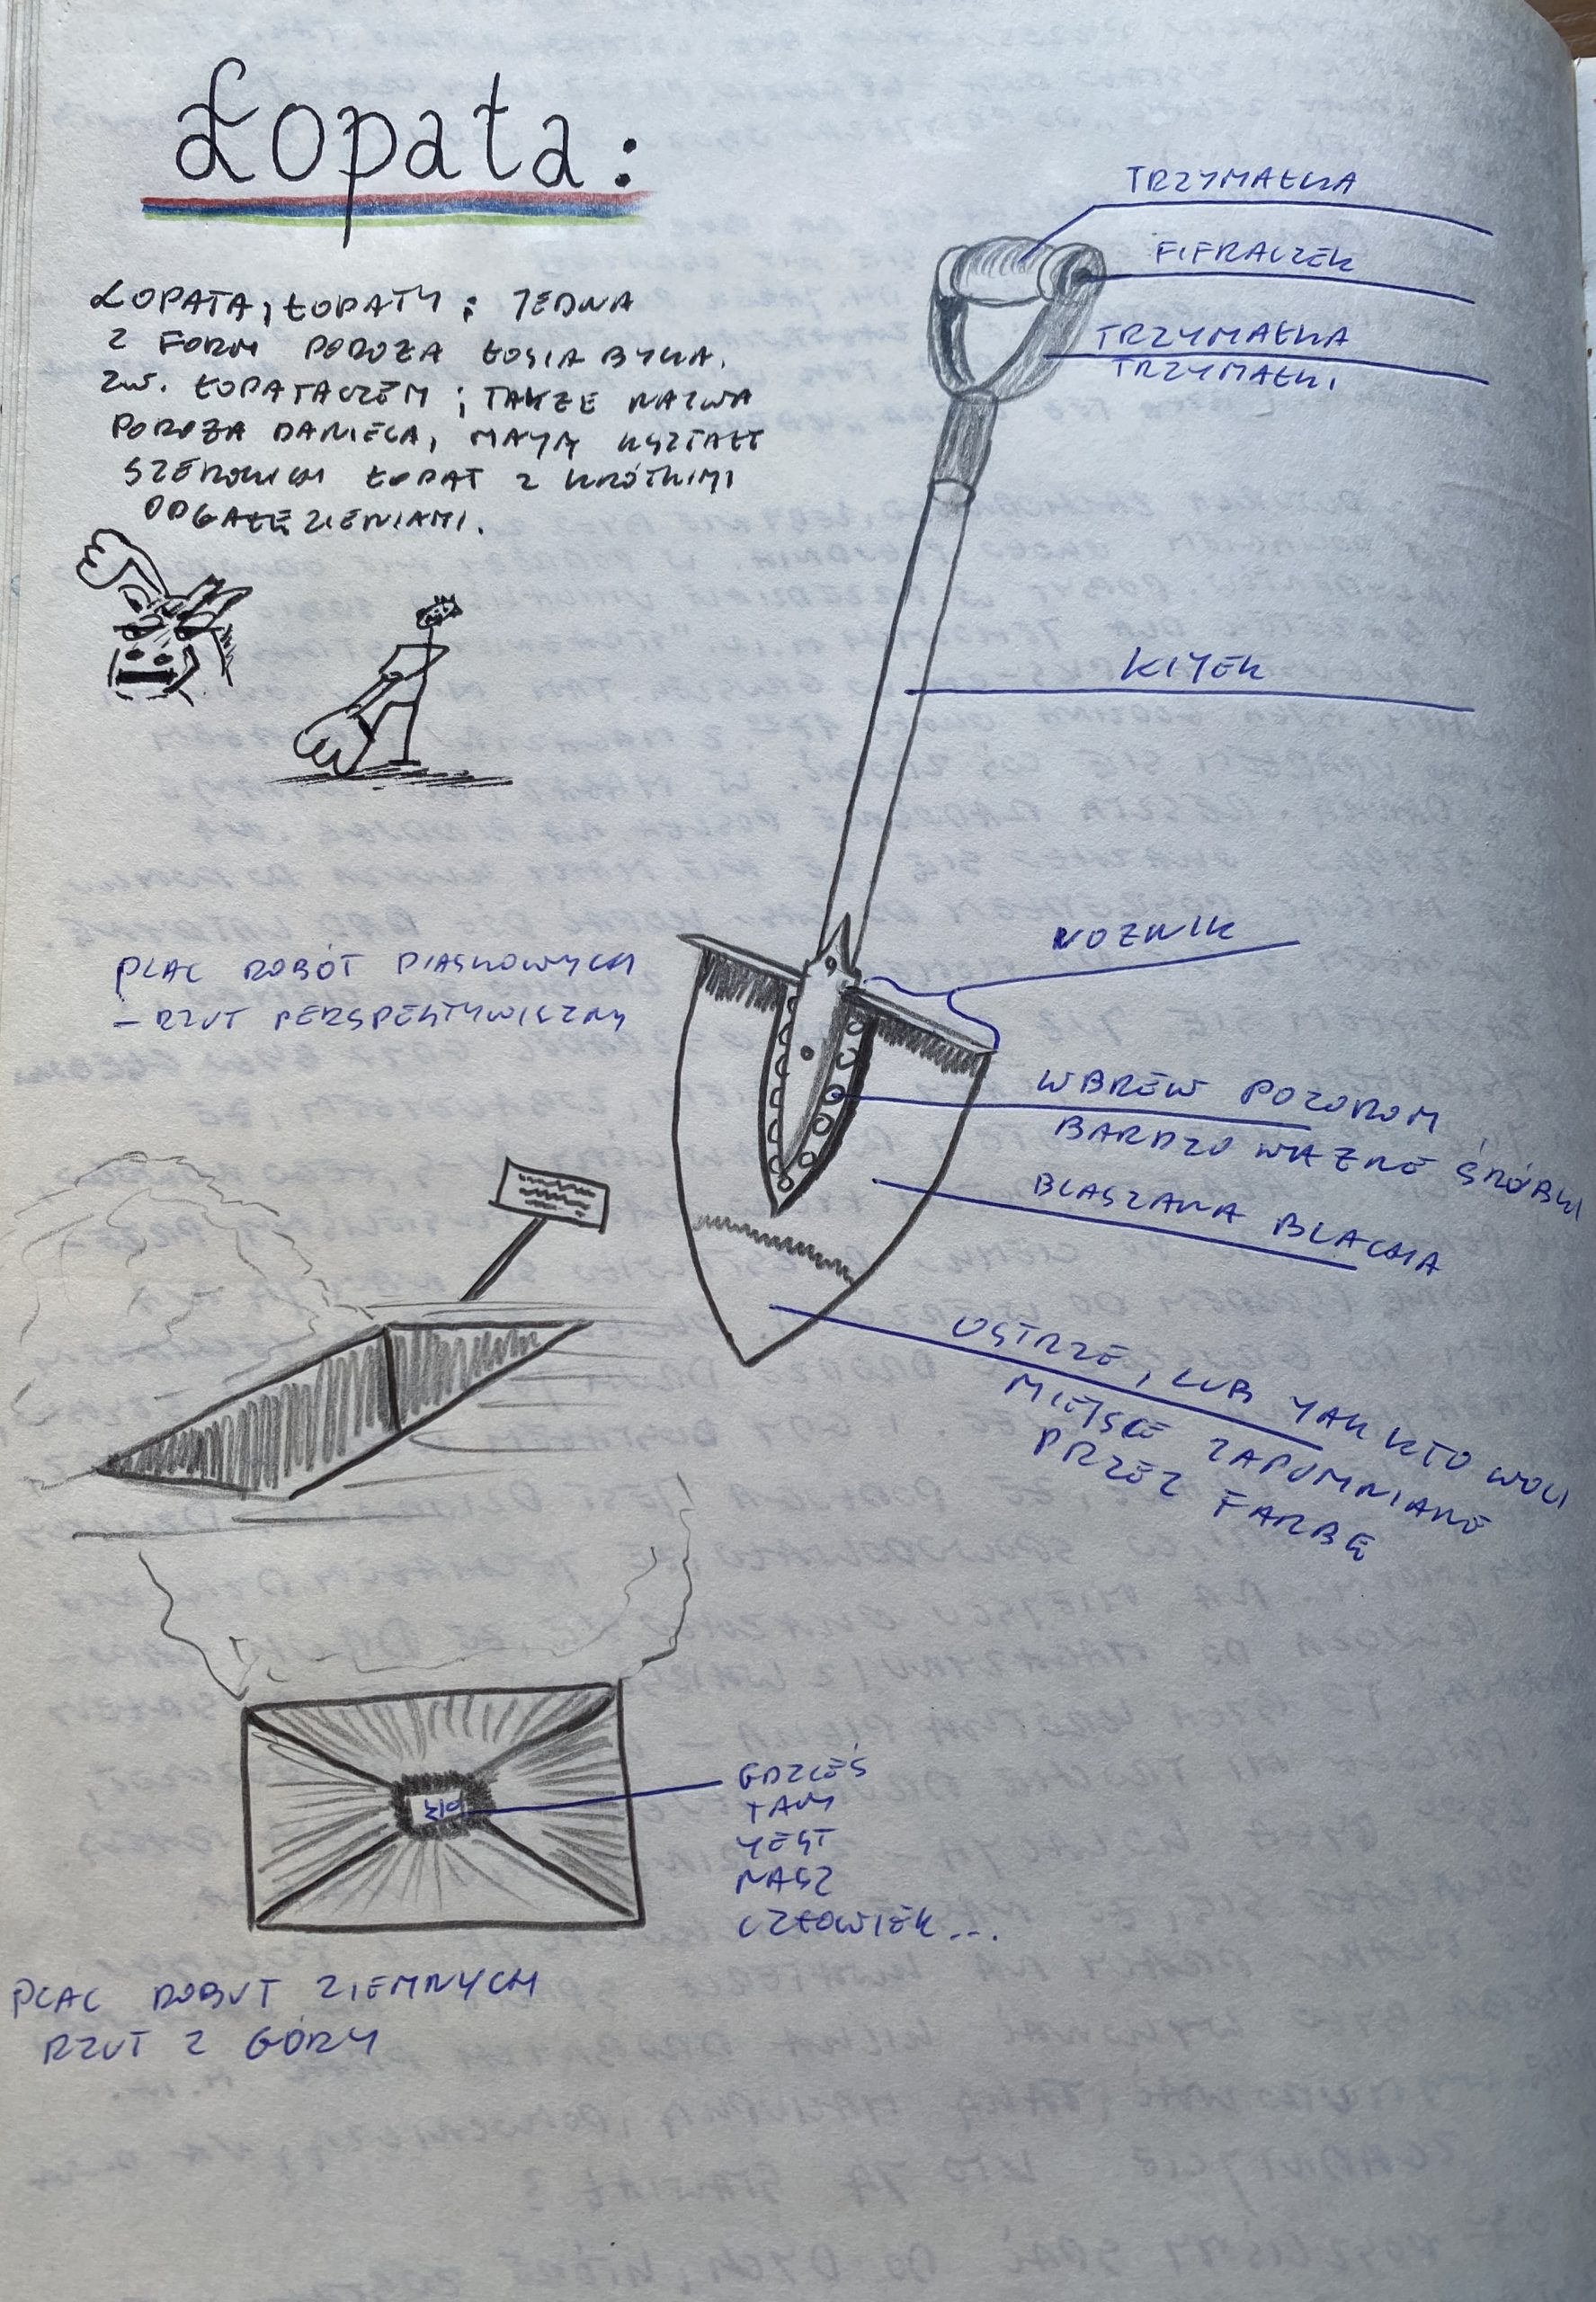 Łopata:
ŁOPATA, ŁOPATY; JEDNA
Z FORM POROŻA ŁOSIA BYKA.
ZW. ŁOPATACZEM; TAKŻE NAZWA
POROŻA DANIELA, MAJĄ KSZTAŁT
SZEROKICH ŁOPAT Z KRÓTKIMI
ODGAŁĘZIENIAMI.
TRZYMAŁKA
FIFRACZEK
TRZYMAŁKA
TRZYMAŁKI
KIYEK
NOŻNIK
WBREW POZOROM
BARDZO WAŻNE ŚRÓBKI
BLASZANA BLACHA
OSTRZE, LUB YAK KTO WOLI
MIEJSCE ZAPOMNIANE
PRZEZ FARBĘ
PLAC ROBÓT PIASKOWYCH
- RZUT PERSPEKTYWICZNY
GDZIEŚ
TAM
YEST
NASZ
CZŁOWIEK...
PLAC ROBUT ZIEMNYCH
RZUT Z GÓRY